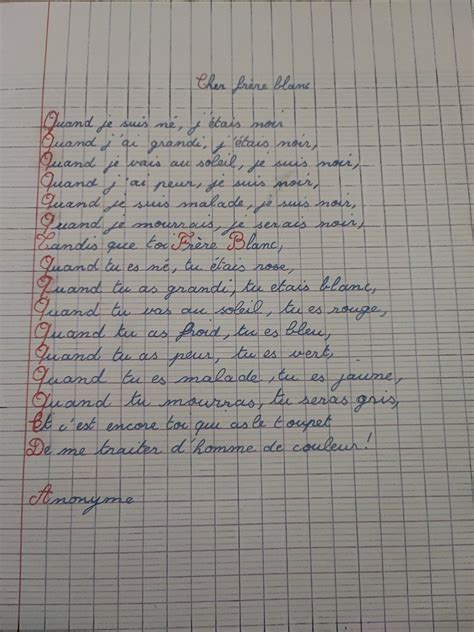 Cher frère blanc
Quand je suis né, j'étais noir
Quand j'ai grandi, j'étais noir,
Quand je vais au soleil, je suis noir,
Quand j'ai peur, je suis noir,
Quand je suis malade, je suis noir,
Quand je mourrais, je serais noir,
Tandis que toi Frère Blanc,
Quand tu es né, tu étais rose,
Quand tu as grandi, tu etais blanc,
Quand tu vas au soleil, tu es rouge,
Quand tu as froid, tu es bleu,
Quand tu as peur, tu es vert,
Quand tu es malade, tu es jaune,
Quand tu mourras, tu seras gris,
Et c'est encore toi qui as le toupet
De me traiter d'homme de couleur!
Anonyme